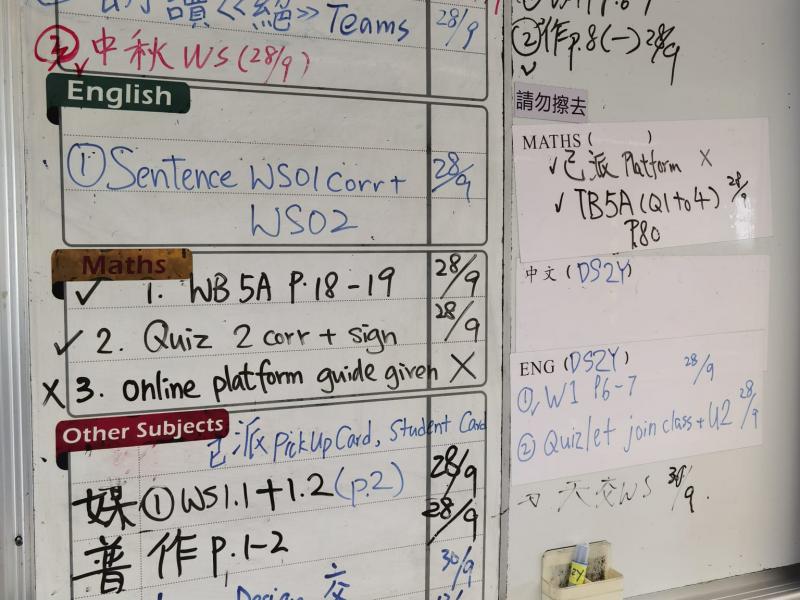 讀《絕》Teams 28/9
② 中秋 WS (28/9)
English
① Sentence WS01 corr + 28/9
WS02
Maths
✓ 1. WB 5A P.18-19 28/9
✓ 2. Quiz 2 corr + sign 28/9
X 3. online platform guide given X
Other Subjects
已派 Pick Up Card, Student Card
媒 ① WS1.1 + 1.2 (p.2) 28/9
普 作 p.1-2 28/9
Design 交 30/9
② 作 p.8 (一) 28/9
✓
請勿擦去
MATHS ( )
✓ 已派 Platform X
✓ TB5A (Q1 to 4) 28/9
P.80
中文 (DS2Y)
ENG (DS2Y)
① W1 P6-7 28/9
② Quizlet join class + U2 28/9
WS 30/9.
2Y